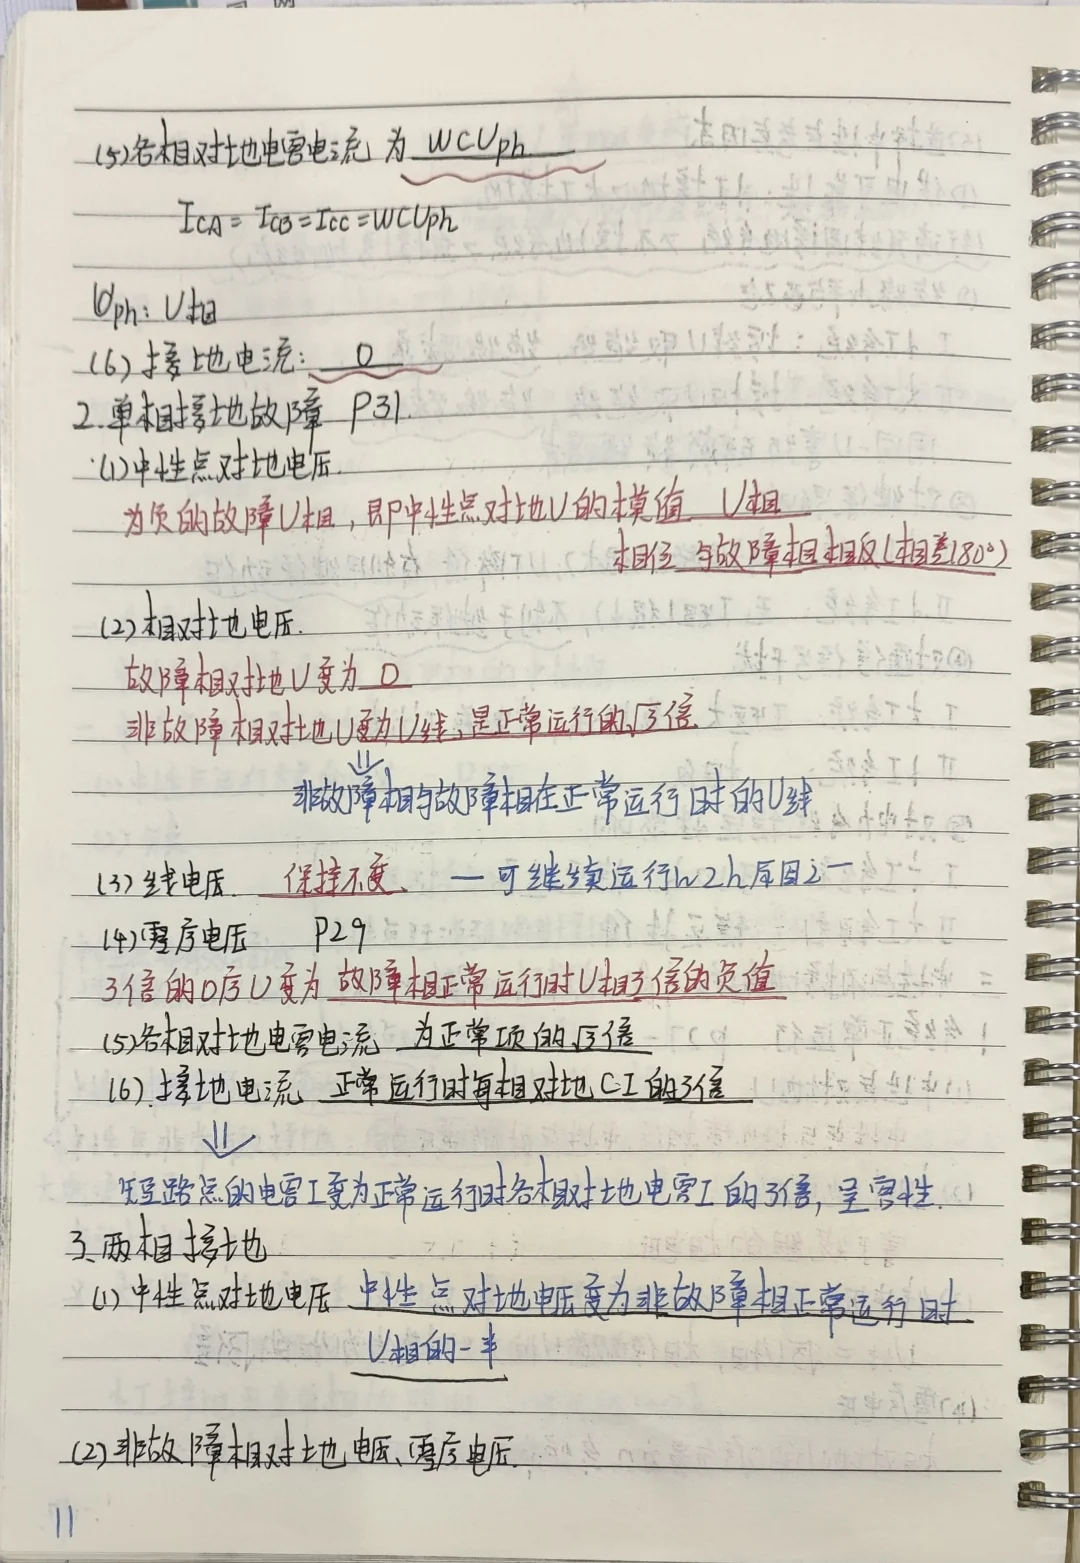 (5)各相对地电容电流为 WCUph
ICA = ICB = ICC = WCUph
Uph: U相
(6)接地电流: 0
2.单相接地故障 P31.
(1)中性点对地电压.
为负的故障U相,即中性点对地U的模值 U相
相位 与故障相相反(相差180°)
(2)相对地电压.
故障相对地U变为 0
非故障相对地U变为U线,是正常运行的√3倍
⇓
非故障相与故障相在正常运行时的U线
(3)线电压. 保持不变、 一可继续运行1~2h原因之一
(4)零序电压 P29
3倍的0序U变为 故障相正常运行时U相3倍的负值
(5)各相对地电容电流 为正常项的√3倍
(6).接地电流 正常运行时每相对地CI的3倍
⇓
短路点的电容I变为正常运行时各相对地电容I的3倍,呈容性.
3.两相接地
(1)中性点对地电压 中性点对地电压变为非故障相正常运行时
U相的一半
(2)非故障相对地电压、零序电压.
11